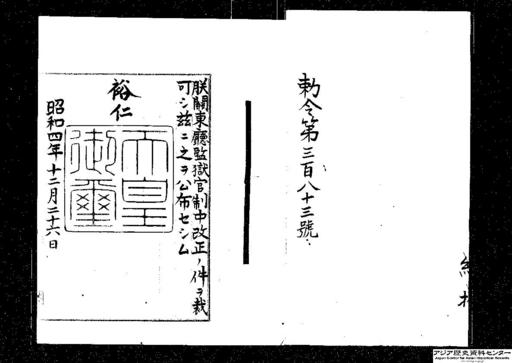 勅令第三百八十三號
朕關東廳監獄官制中改正ノ件ヲ裁
可シ茲ニ之ヲ公布セシム
裕仁
天皇
御璽
昭和四年十二月二十六日
アジア歴史資料センター
Japan Center for Asian Historical Records